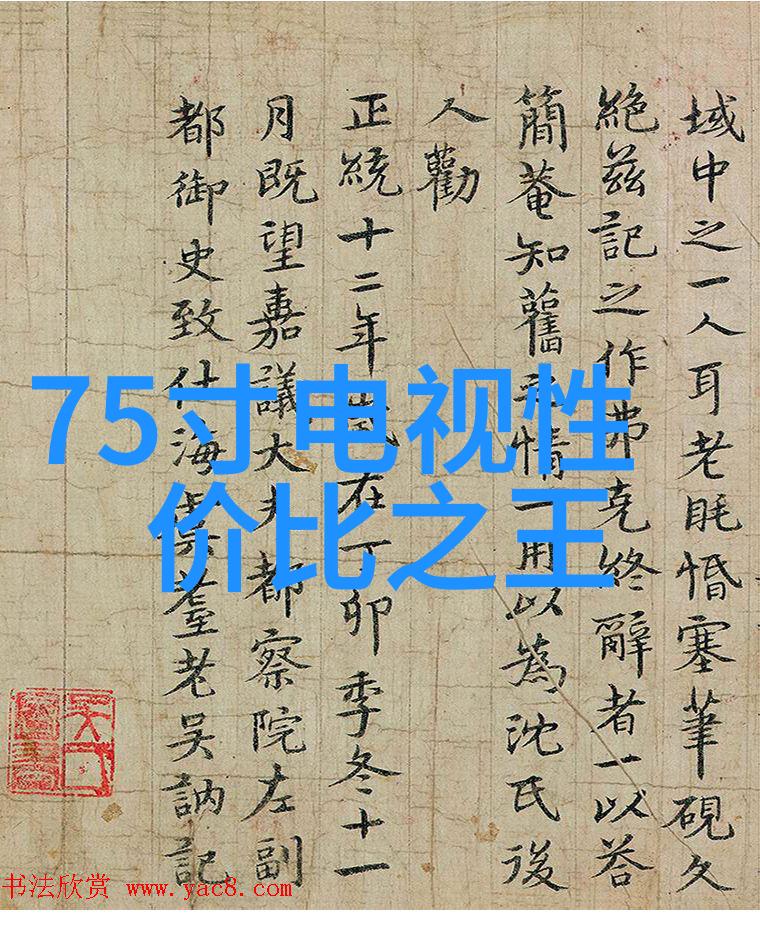 域中之一人耳老眊惛塞筆硯久
絶茲記之作弗克終辭者一以荅
簡菴知舊之情一用以為沈氏後
人勸
正統十二年歲在丁卯季冬十一
月既望嘉議大夫都察院左副
都御史致仕海虞耋老吳訥記
75寸电视性
价比之王
书法欣赏 www.yac8.com